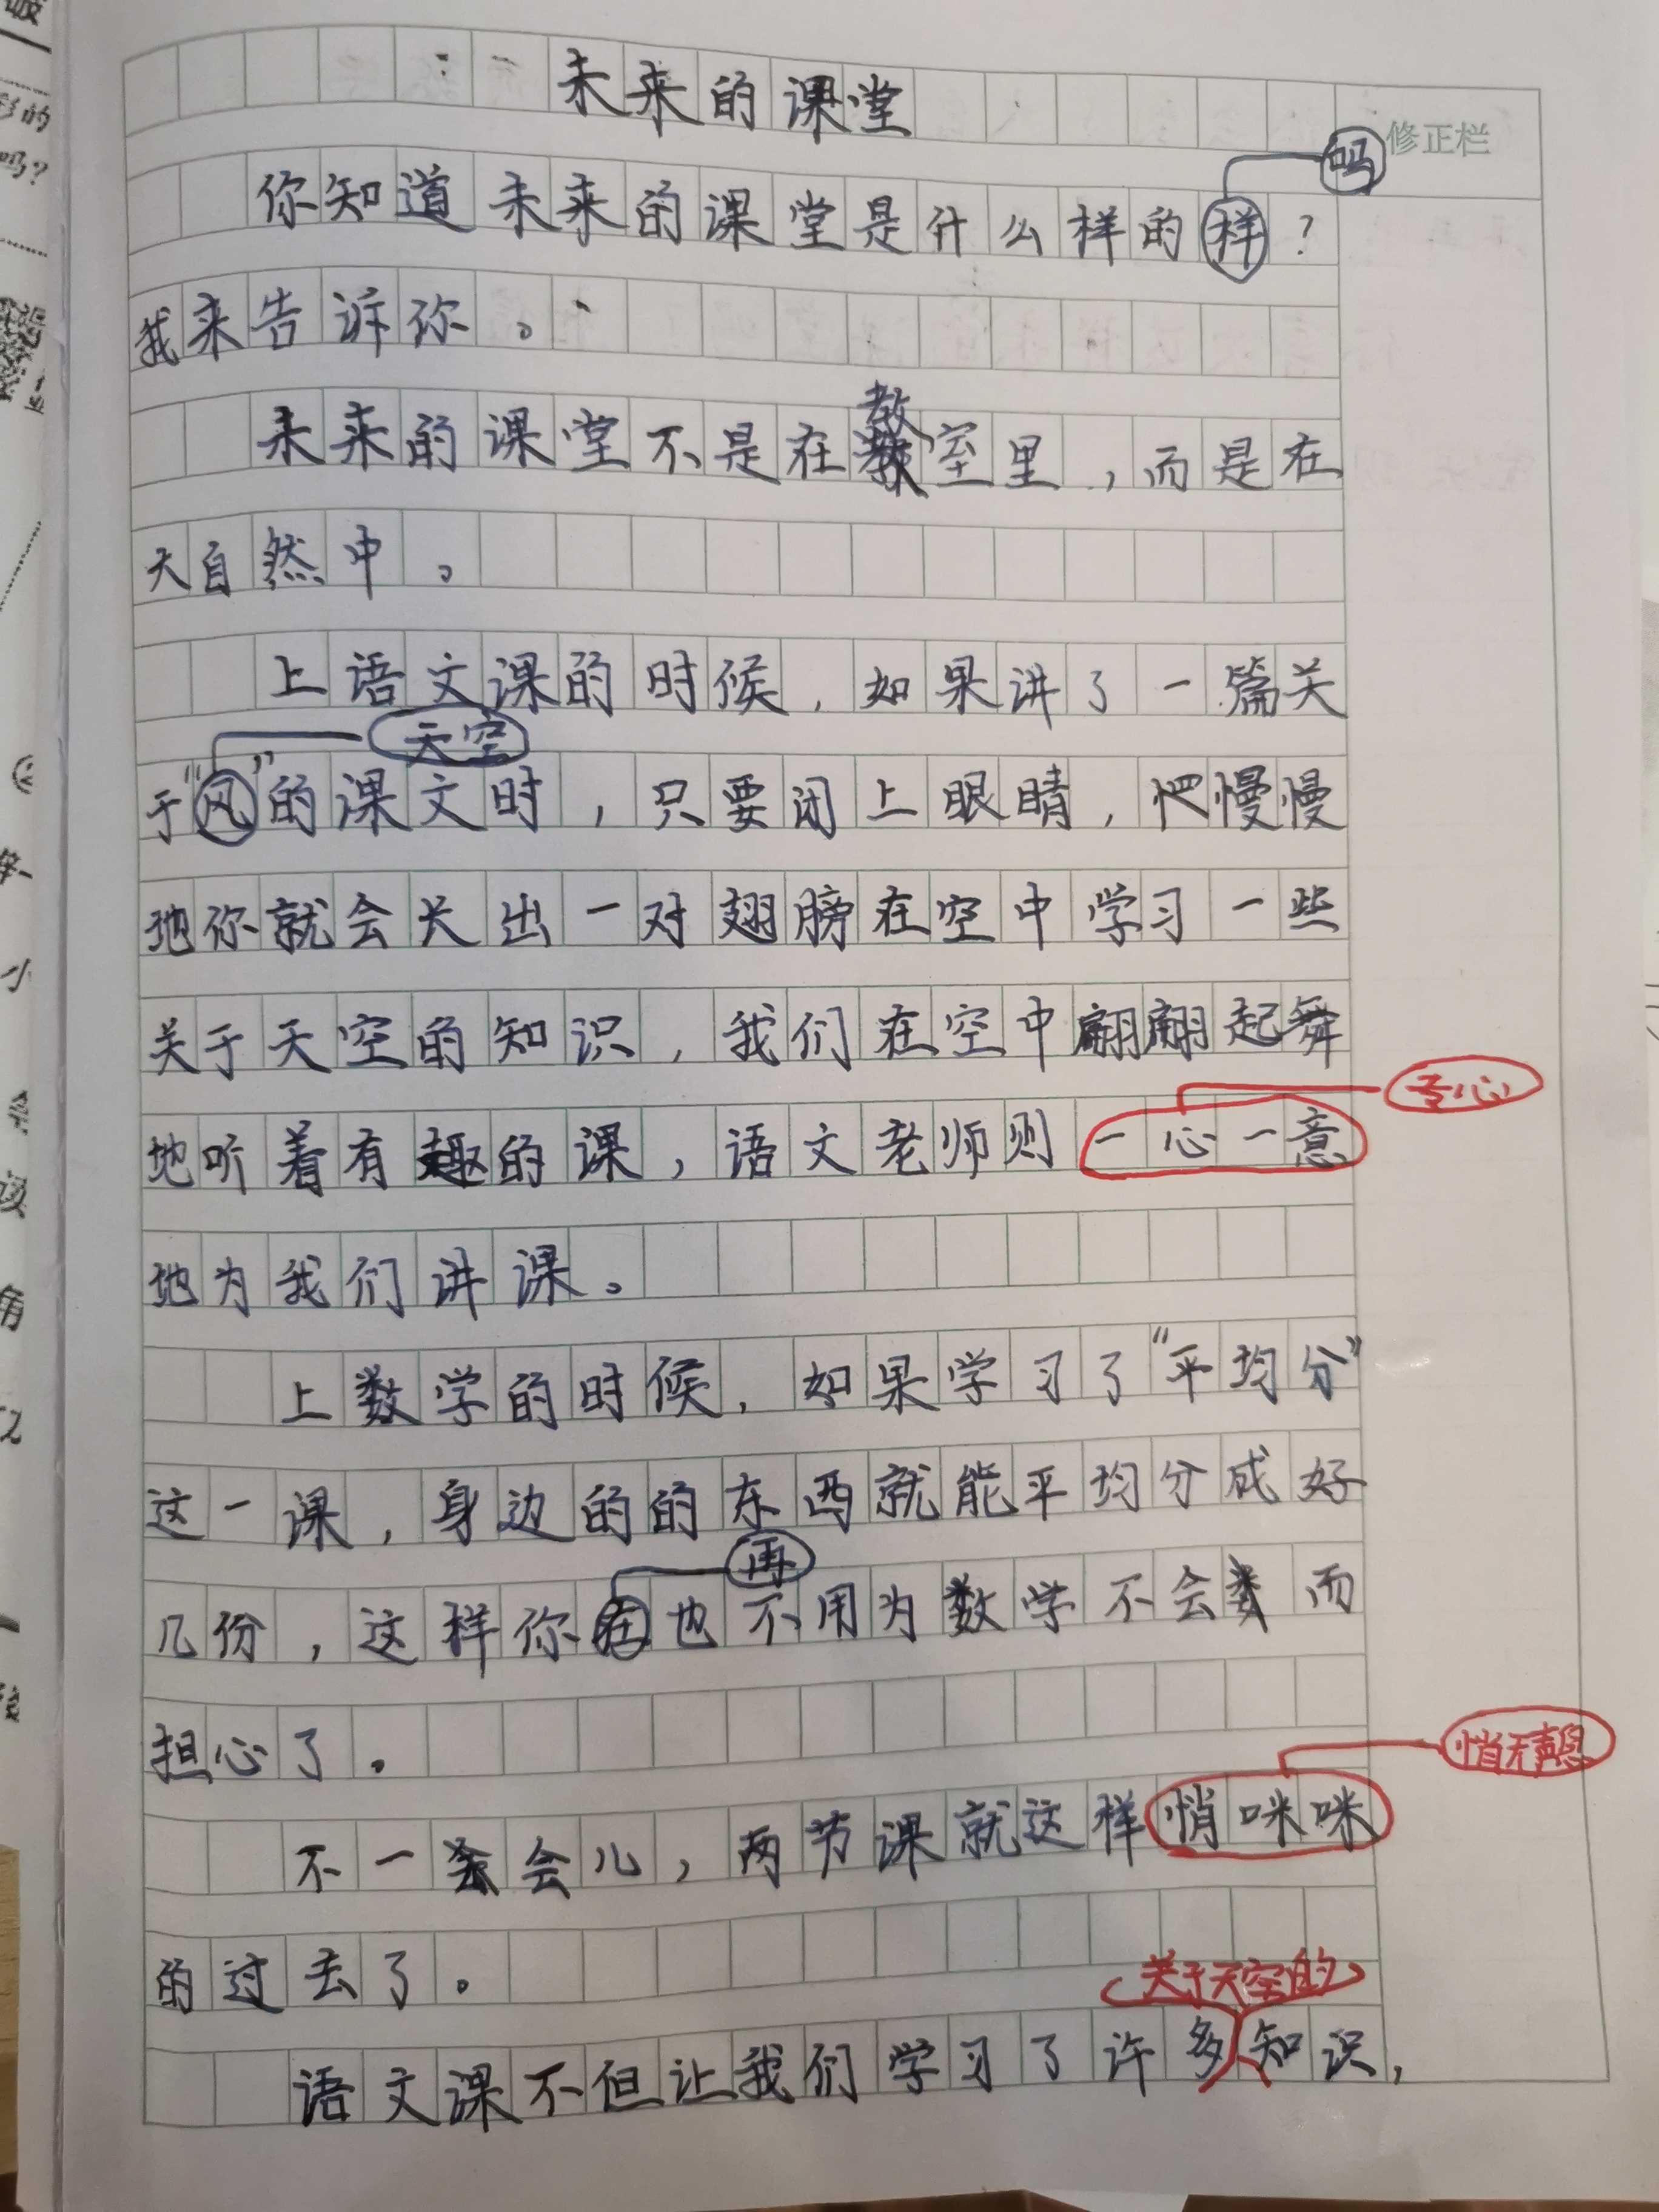 未来的课堂
修正栏
吗
你知道未来的课堂是什么样的样?
我来告诉你。
教
未来的课堂不是在教室里,而是在
大自然中。
上语文课的时候,如果讲了一篇关
天空
于“风”的课文时,只要闭上眼睛,慢慢
地你就会长出一对翅膀在空中学习一些
关于天空的知识,我们在空中翩翩起舞
专心
地听着有趣的课,语文老师则一心一意
地为我们讲课。
上数学的时候,如果学习了“平均分”
这一课,身边的的东西就能平均分成好
再
几份,这样你在也不用为数学不会而
担心了。
悄无声息
不一会儿,两节课就这样悄咪咪
的过去了。
关于天空的
语文课不但让我们学习了许多知识,